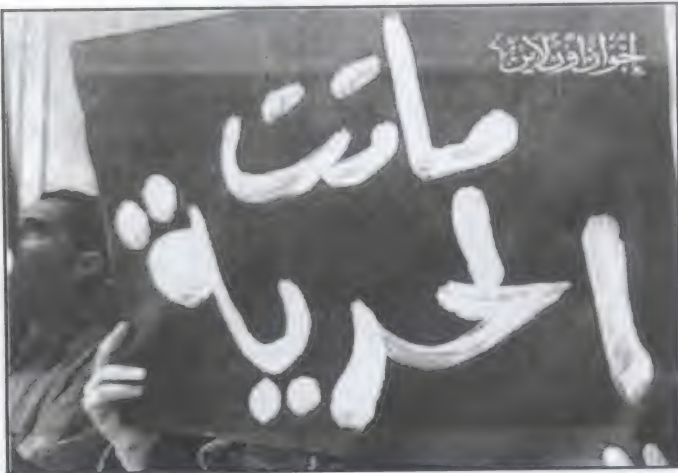 إخوان اون لاين
ماتت
الحرية